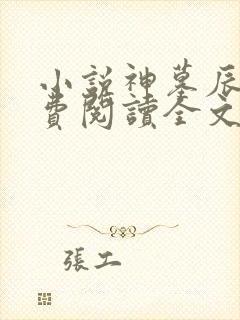 小說神墓辰
費閱讀全文
張工